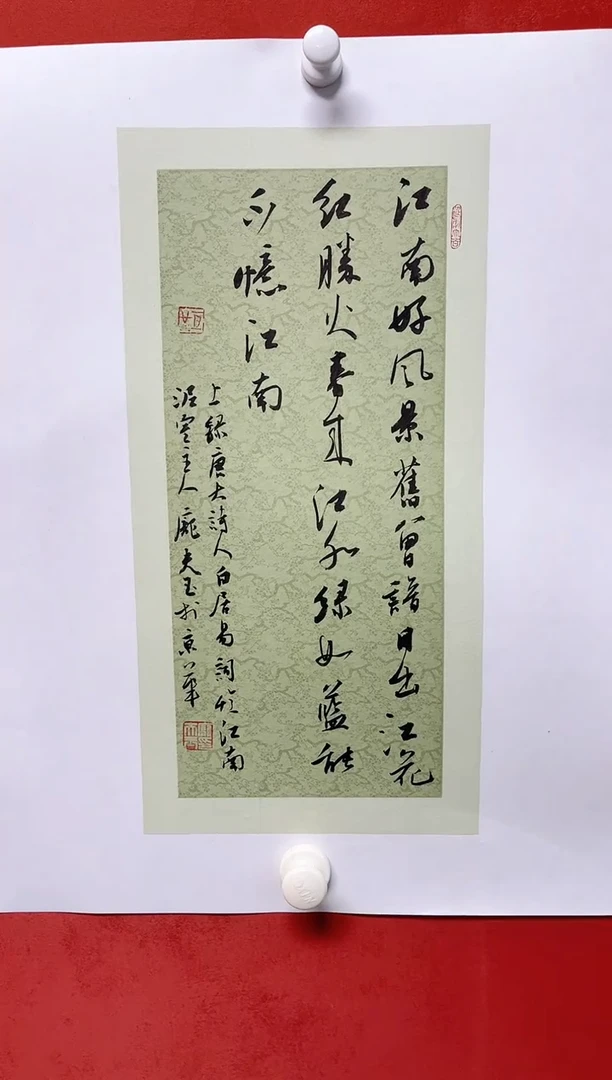 江南好风景舊曾諳日出江花
红勝火春来江水绿如藍能
不憶江南
上録唐大詩人白居易詞憶江南
主人龐夫玉於京華